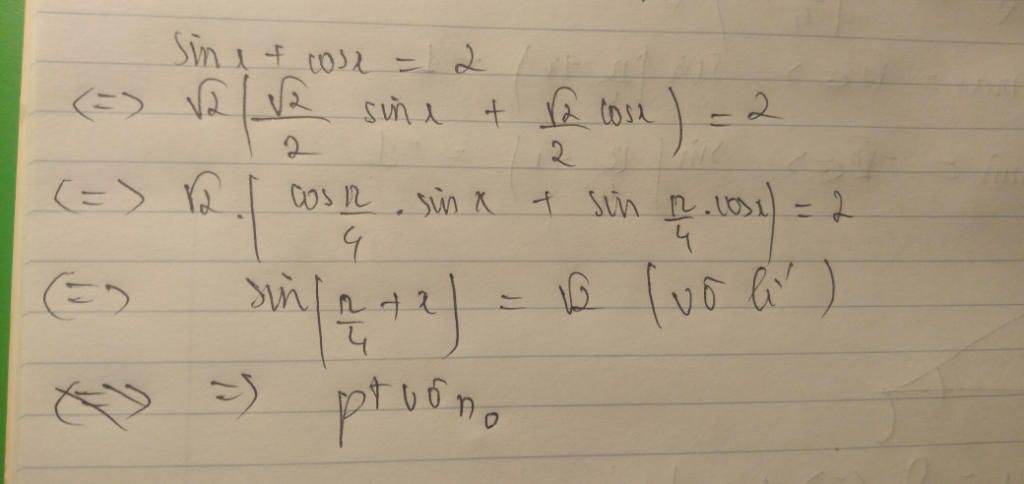 sin x + cos x = 2
<=> √2 (√2/2 sin x + √2/2 cos x) = 2
<=> √2 . (cos π/4 . sin x + sin π/4 . cos x) = 2
<=> sin (π/4 + x) = √2 (vô lí)
=> pt vô n0